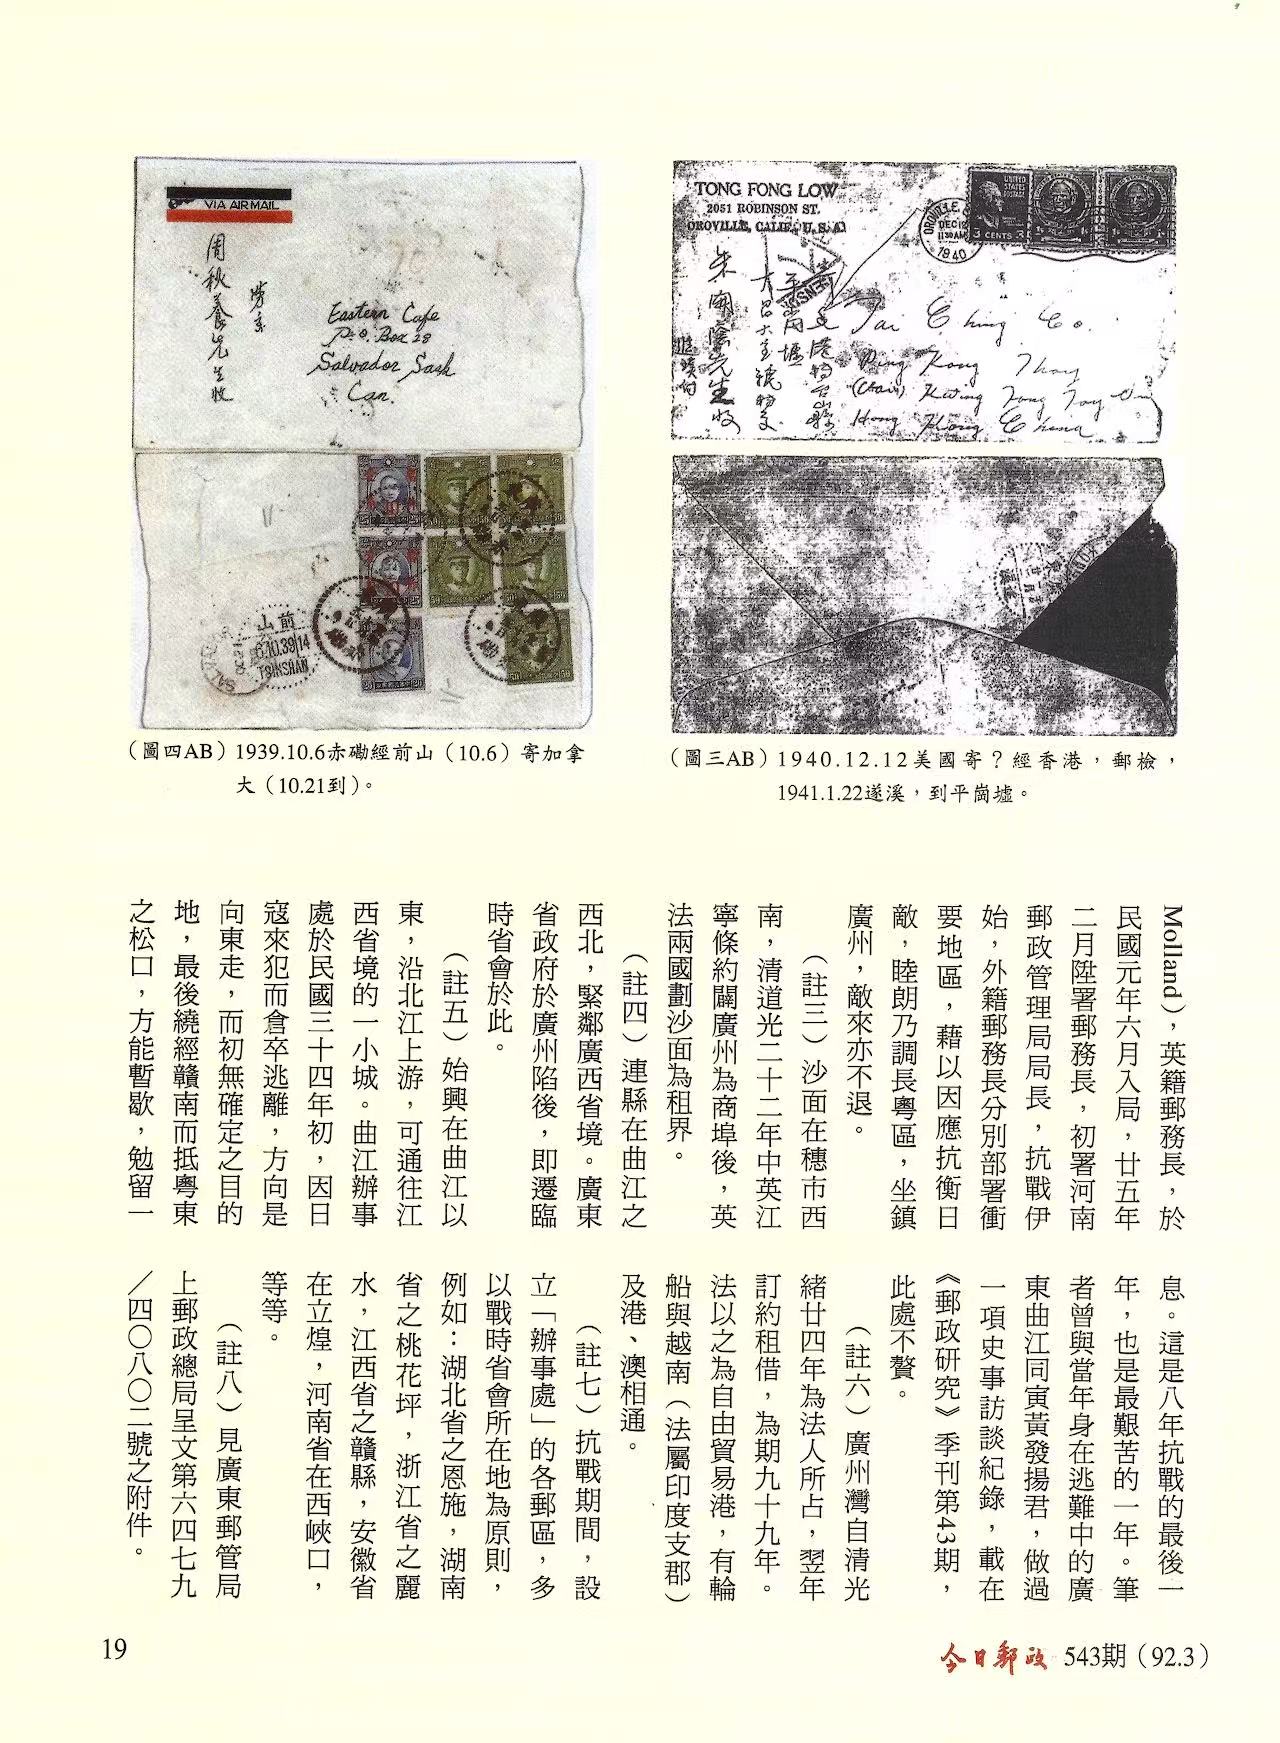 TONG FONG LOW
2051 ROBINSON ST.
OROVILLE, CALIF., U. S. A.
OROVILLE
DEC 12
11 30 AM
1940
UNITED STATES POSTAGE
3 CENTS 3
朱開蔭先生收
Tai Ching Co.
Ping Kong Thong
Hong Kong China
(圖三AB)1940.12.12美國寄?經香港,郵檢,
1941.1.22遂溪,到平崗墟。
VIA AIR MAIL
周秋養先生收
勞寄
Eastern Cafe
P.O. Box 28
Salvador Sask
Can.
山前
6.10.39 14
TSINSHAN
(圖四AB)1939.10.6赤磡經前山(10.6)寄加拿
大(10.21到)。
Molland),英籍郵務長,於
民國元年六月入局,廿五年
二月陞署郵務長,初署河南
郵政管理局局長,抗戰伊
始,外籍郵務長分別部署衝
要地區,藉以因應抗衡日
敵,睦朗乃調長粵區,坐鎮
廣州,敵來亦不退。
(註三)沙面在穗市西
南,清道光二十二年中英江
寧條約闢廣州為商埠後,英
法兩國劃沙面為租界。
(註四)連縣在曲江之
西北,緊鄰廣西省境。廣東
省政府於廣州陷後,即遷臨
時省會於此。
(註五)始興在曲江以
東,沿北江上游,可通往江
西省境的一小城。曲江辦事
處於民國三十四年初,因日
寇來犯而倉卒逃離,方向是
向東走,而初無確定之目的
地,最後繞經贛南而抵粵東
之松口,方能暫歇,勉留一
息。這是八年抗戰的最後一
年,也是最艱苦的一年。筆
者曾與當年身在逃難中的廣
東曲江同寅黃發揚君,做過
一項史事訪談紀錄,載在
《郵政研究》季刊第43期,
此處不贅。
(註六)廣州灣自清光
緒廿四年為法人所占,翌年
訂約租借,為期九十九年。
法以之為自由貿易港,有輪
船與越南(法屬印度支郡)
及港、澳相通。
(註七)抗戰期間,設
立「辦事處」的各郵區,多
以戰時省會所在地為原則,
例如:湖北省之恩施,湖南
省之桃花坪,浙江省之麗
水,江西省之贛縣,安徽省
在立煌,河南省在西峽口,
等等。
(註八)見廣東郵管局
上郵政總局呈文第六四七九
/四〇八〇二號之附件。
19
今日郵政 543期(92.3)